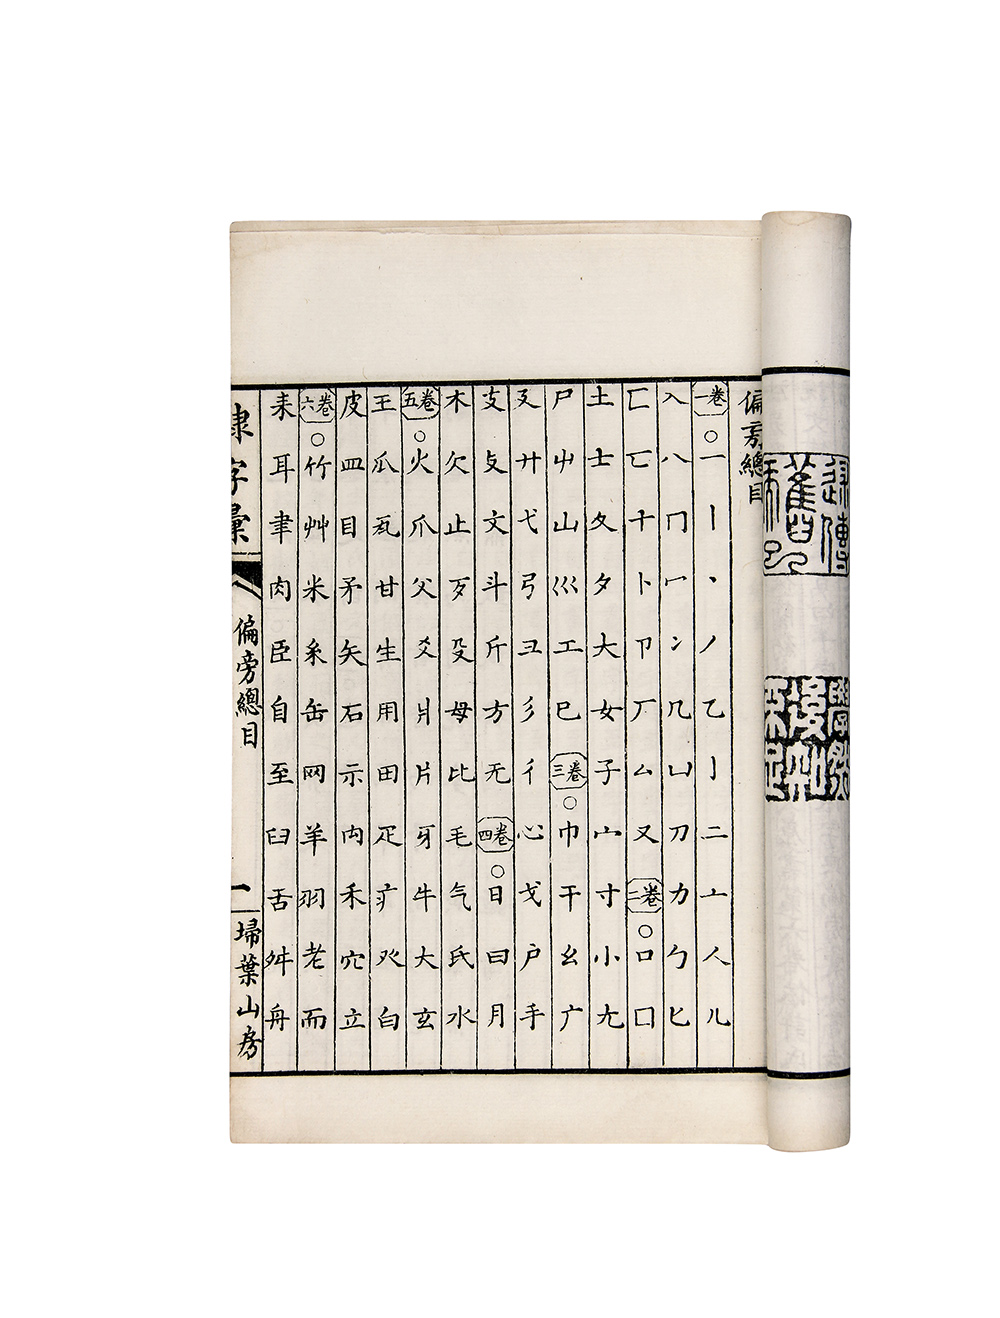 偏旁總目
卷一○一丨丶丿乙亅二亠人儿
入八冂冖冫几凵刀力勹匕
匚匸十卜卩厂厶又卷二○口囗
土士夂夕大女子宀寸小尢
尸屮山巛工巳卷三○巾干幺广
廴廾弋弓彐彡彳心戈戶手
支攴文斗斤方无卷四○日曰月
木欠止歹殳母比毛气氏水
卷五○火爪父爻爿片牙牛犬玄
王瓜瓦甘生用田疋疒癶白
皮皿目矛矢石示禸禾穴立
卷六○竹艸米糸缶网羊羽老而
耒耳聿肉臣自至臼舌舛舟
隸字彙 偏旁總目 一 埽葉山房